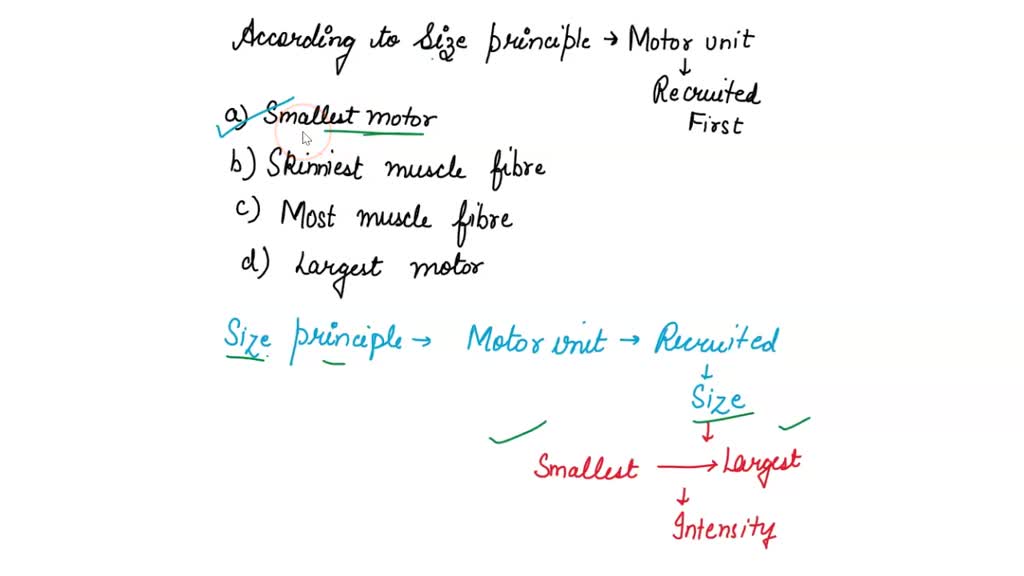 According to Size principle → Motor unit
↓
Recruited
First
a) Smallest motor
b) Skinniest muscle fibre
c) Most muscle fibre
d) Largest motor
Size principle → Motor unit → Recruited
↓
Size
↓
Smallest → Largest
↓
Intensity